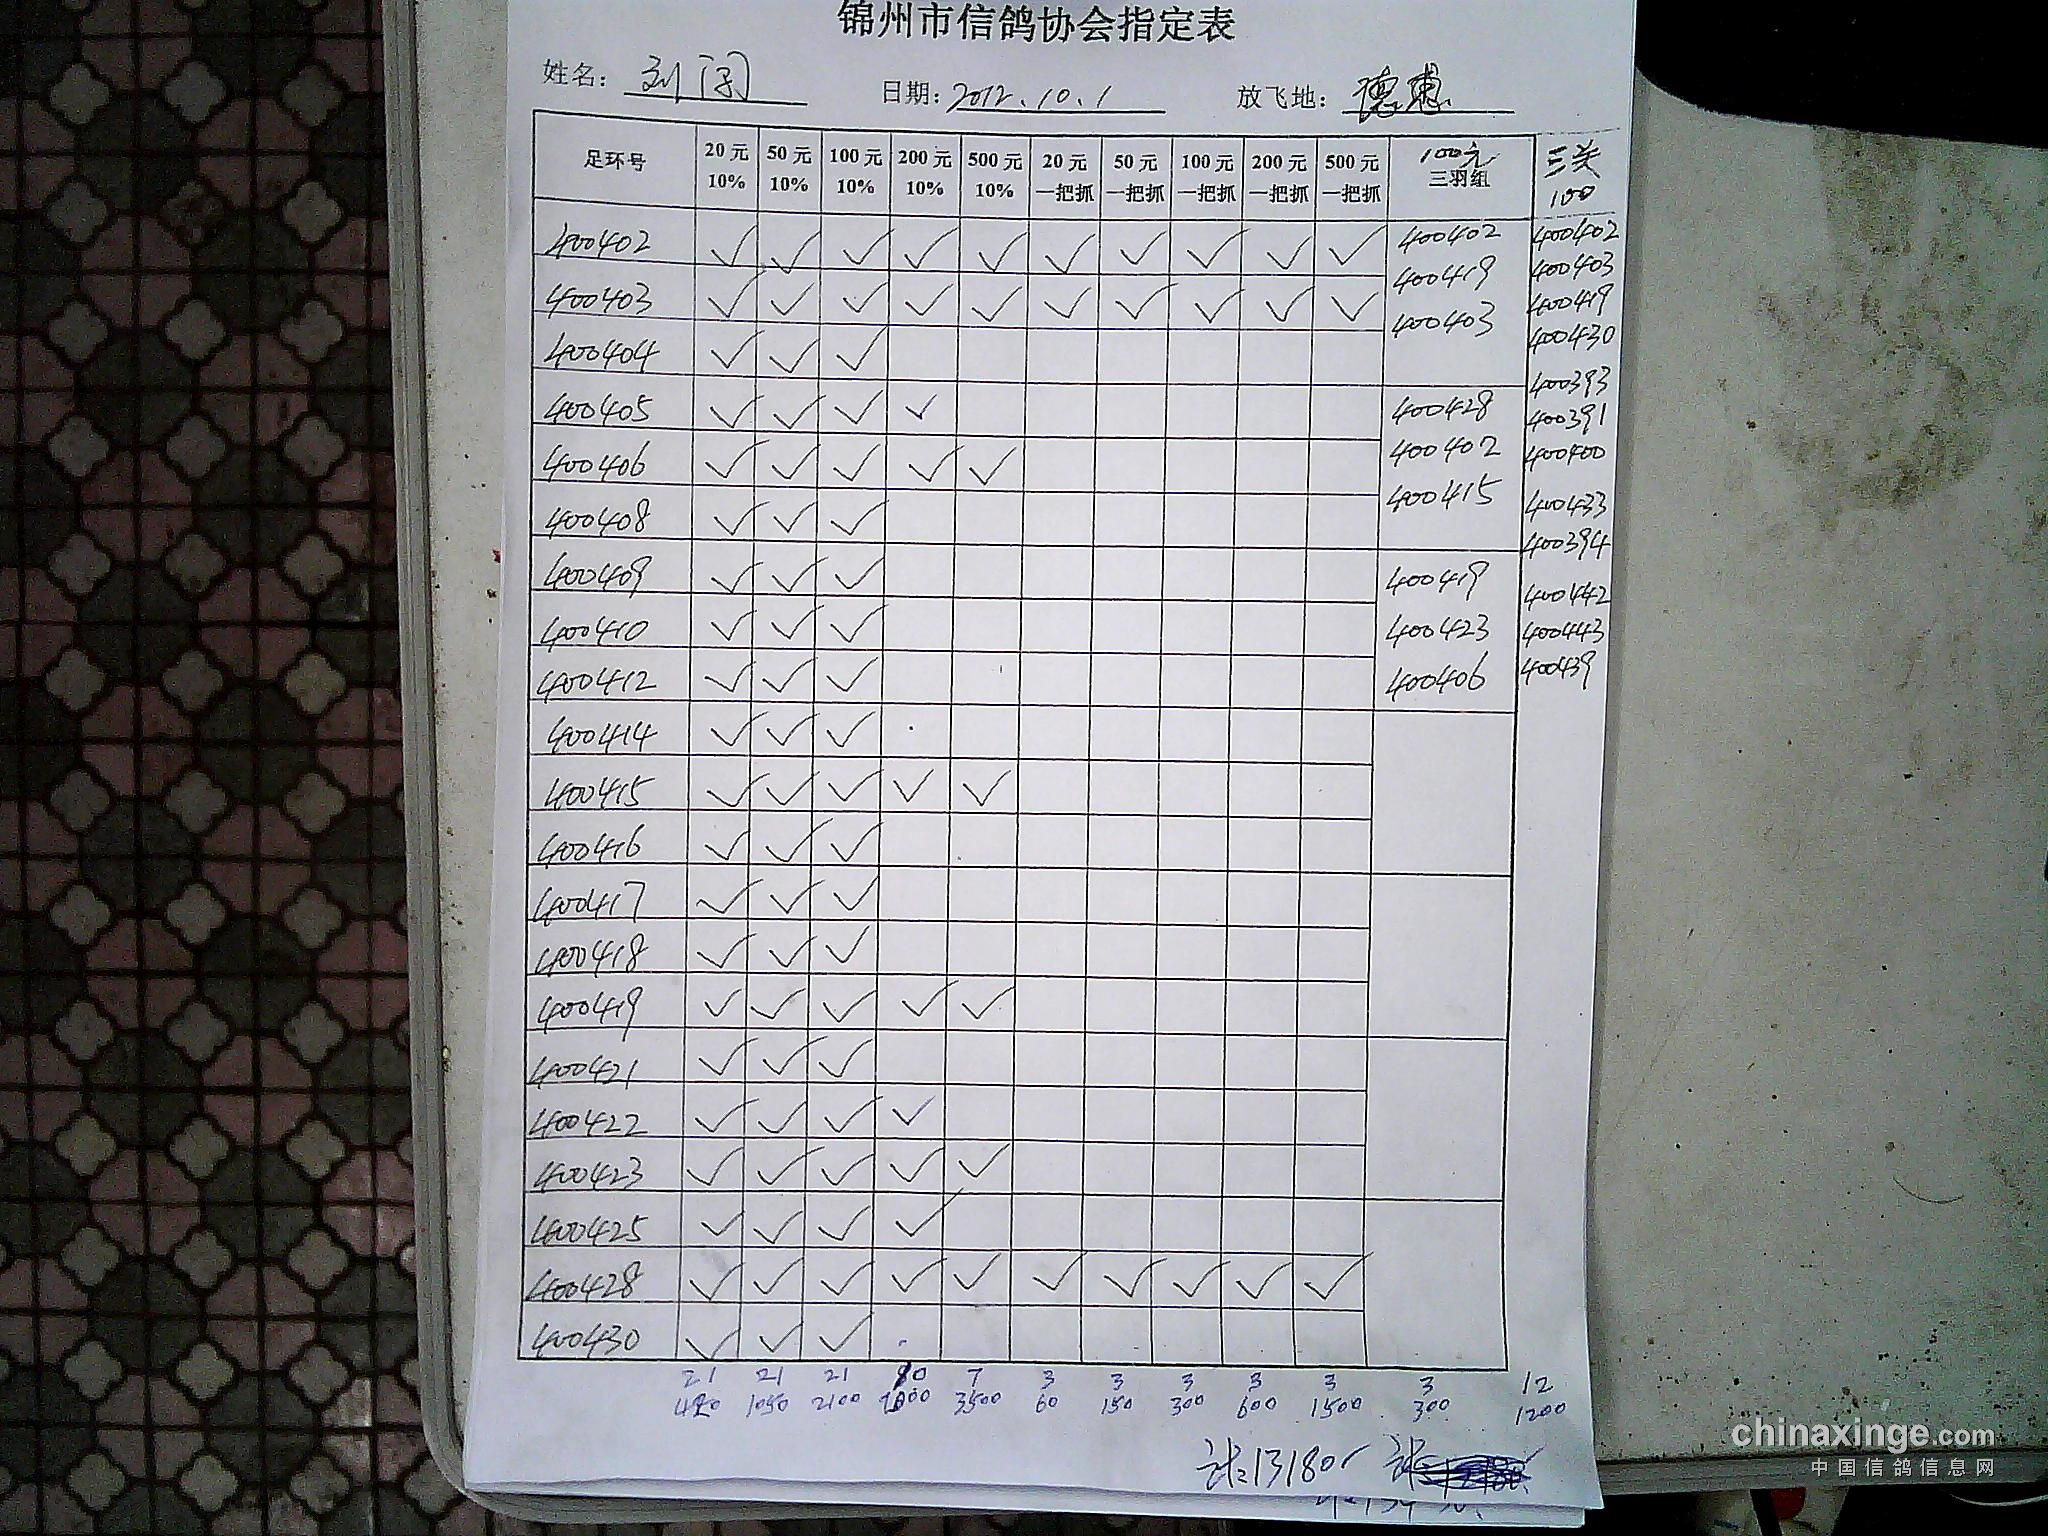 锦州市信鸽协会指定表
姓名: 刘闯 日期: 2012.10.1 放飞地: 德惠
足环号 20元 10% 50元 10% 100元 10% 200元 10% 500元 10% 20元 一把抓 50元 一把抓 100元 一把抓 200元 一把抓 500元 一把抓 100元 三羽组 三关 100
400402 ✓ ✓ ✓ ✓ ✓ ✓ ✓ ✓ ✓ ✓
400403 ✓ ✓ ✓ ✓ ✓ ✓ ✓ ✓ ✓ ✓
400404 ✓ ✓ ✓
400405 ✓ ✓ ✓ ✓
400406 ✓ ✓ ✓ ✓ ✓
400408 ✓ ✓ ✓
400409 ✓ ✓ ✓
400410 ✓ ✓ ✓
400412 ✓ ✓ ✓
400414 ✓ ✓ ✓
400415 ✓ ✓ ✓ ✓ ✓
400416 ✓ ✓ ✓
400417 ✓ ✓ ✓
400418 ✓ ✓ ✓
400419 ✓ ✓ ✓ ✓ ✓
400421 ✓ ✓ ✓
400422 ✓ ✓ ✓ ✓
400423 ✓ ✓ ✓ ✓ ✓
400425 ✓ ✓ ✓ ✓
400428 ✓ ✓ ✓ ✓ ✓ ✓ ✓ ✓ ✓ ✓
400430 ✓ ✓ ✓
400402
400419
400403
400428
400402
400415
400419
400423
400406
400402
400403
400419
400430
400393
400391
400400
400433
400394
400442
400443
400439
21 21 21 10 7 3 3 3 3 3 3 12
420 1050 2100 3500 60 150 300 600 1500 300 1200
计:13180 计:
chinaxinge.com
中国信鸽信息网